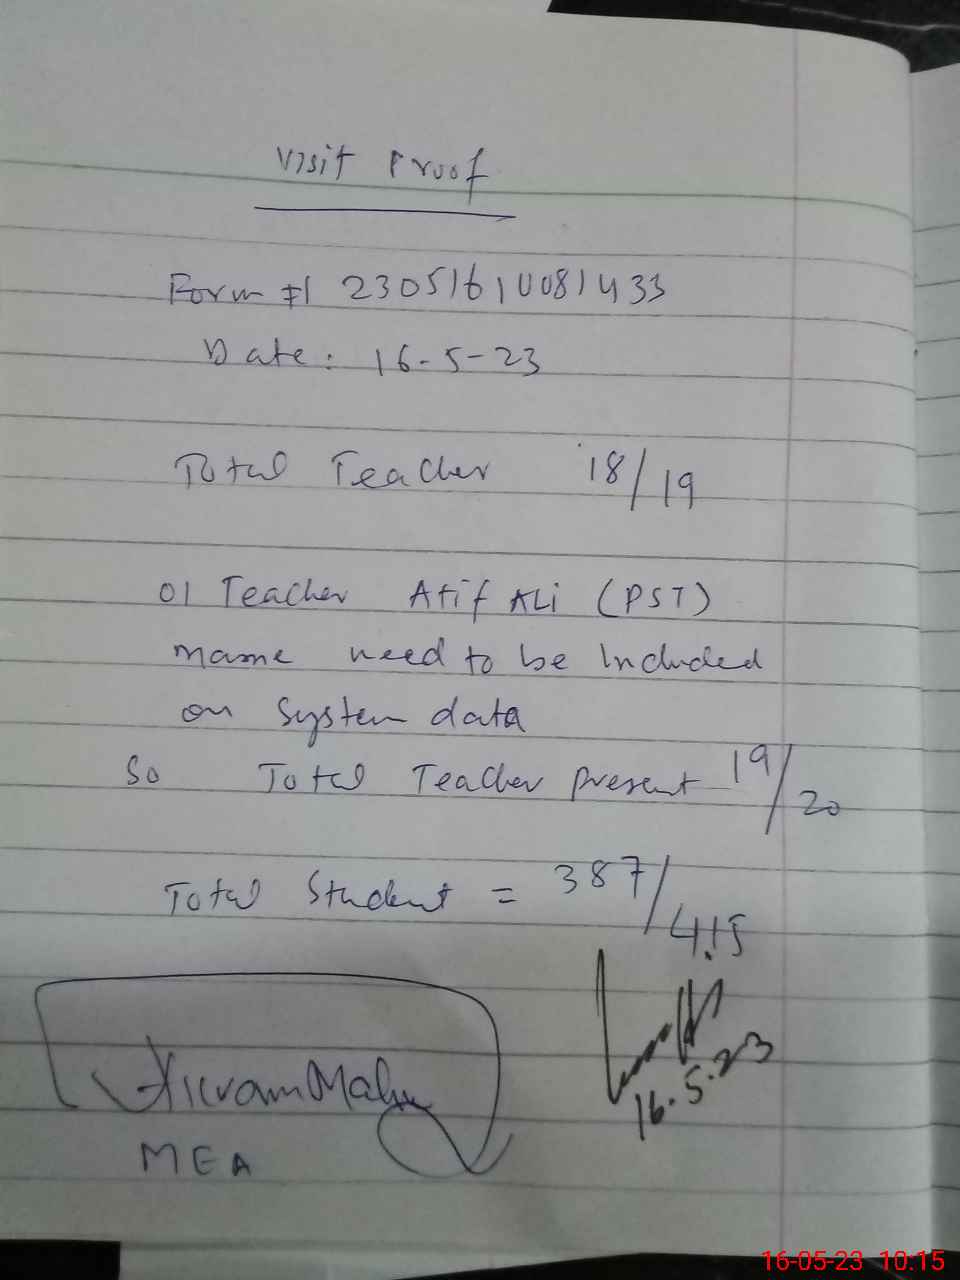 Visit Proof
Form #1 23051610081433
Date: 16-5-23
Total Teacher 18/19
01 Teacher Atif Ali (PST)
name need to be Included
on System data
So Total Teacher present 19/20
Total Student = 387/415
16.5.23
MEA
16-05-23 10:15